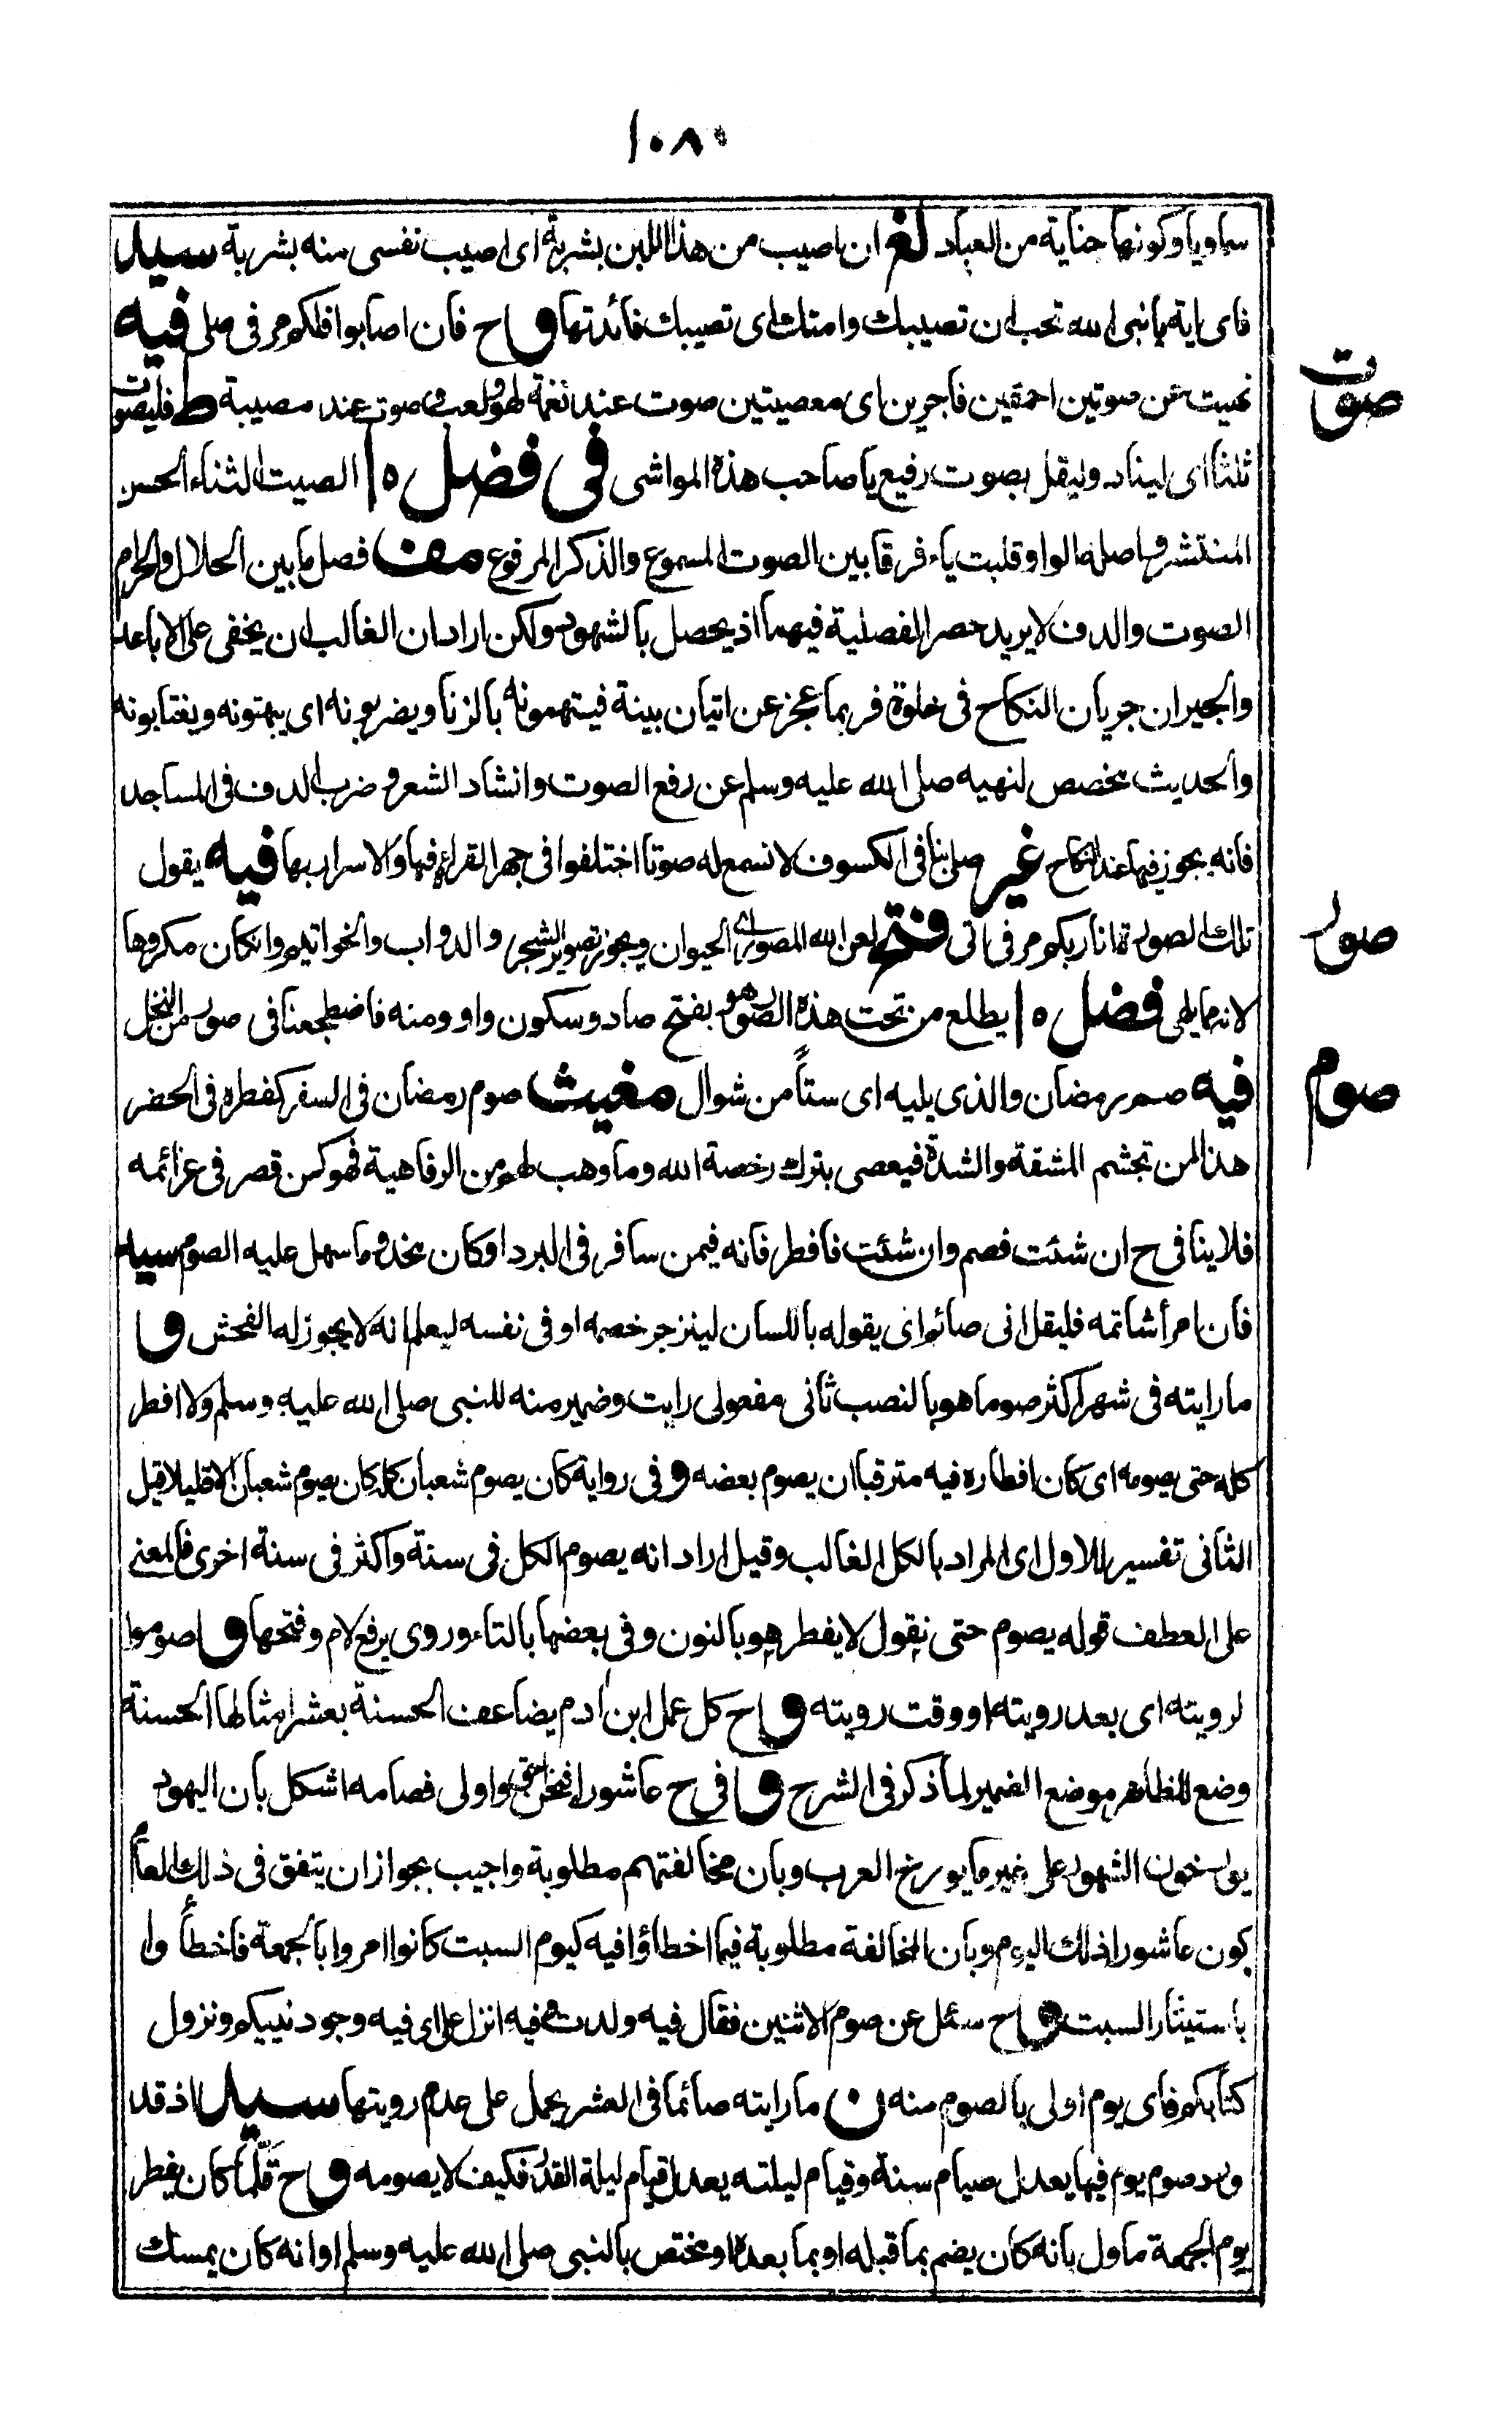 ١٠٨٠
سماويا وكونها جناية من العباد لغ ان اصيب من هذا اللبن بشربة اى اصيب نفسى منه بشربة سيد
فاى اية يا نبى الله تحب ان تصيبك وامتك اى تصيبك فائدتها و ح فان اصابوا فلكم مر فى صلى فيه
صوت
نهيت عن صوتين احمقين فاجرين اى معصيتين صوت عند نغمة لهو ولعب وصوت عند مصيبة ط فليصوت
ثلثا اى ليناد وليقل بصوت رفيع يا صاحب هذه المواشى فى فضل ه ا الصيت الثناء الحسن
المنتشر واصله الواو قلبت ياء فرقا بين الصوت المسموع والذكر المرفوع مف فصل ما بين الحلال والحرام
الصوت والدف لا يريد حصر الفصلية فيهما اذ يحصل بالشهود ولكن اراد ان الغالب ان يخفى على الاباعد
والجيران جريان النكاح فى خلوة فربما عجز عن اتيان بينة فيتهمونه بالزنا ويضربونه اى يبهتونه ويغتابونه
والحديث مخصص لنهيه صلى الله عليه وسلم عن رفع الصوت وانشاد الشعر و ضرب الدف فى المساجد
فانه يجوز فيها عند النكاح غير صلى بنا فى الكسوف لا نسمع له صوتا اختلفوا فى جهر القراءة فيها والاسرار بها فيه يقول
صور
تلك الصورة انا ربكم مر فى اتى فتح لعن الله المصور اى الحيوان ويجوز تصوير الشجر والدواب والخواتيم وانكان مكروها
لانه مما يلهى فضل ه ا يطلع من تحت هذه الصور هو بفتح صاد وسكون واو ومنه فاضطجعنا فى صور من النخل
صوم
فيه صم رمضان والذى يليه اى ستاً من شوال مغيث صوم رمضان فى السفر كفطره فى الحضر
هذا لمن تجشم المشقة والشدة فيعصى بترك رخصة الله وما وهب لهم من الرفاهية فهو كمن قصر فى عزائمه
فلا ينافى ح ان شئت فصم وان شئت فافطر فانه فيمن سافر فى البرد او كان مخدوما سهل عليه الصوم سيد
فان امرأ شاتمه فليقل انى صائم اى يقوله باللسان لينزجر خصمه او فى نفسه ليعلم انه لا يجوز له الفحش و
ما رايته فى شهر اكثر صوما هو بالنصب ثانى مفعولى رايت وضمير منه للنبى صلى الله عليه وسلم ولا افطر
كله حتى يصومه اى كان افطاره فيه مترقبا ان يصوم بعضه و فى رواية كان يصوم شعبان كله كان يصوم شعبان الا قليلا قيل
الثانى تفسير للاول اى المراد بالكل الغالب وقيل اراد انه يصوم الكل فى سنة واكثر فى سنة اخرى فالمعنى
على العطف قوله يصوم حتى نقول لا يفطر هو بالنون وفى بعضها بالتاء وروى برفع لام وفتحها و صوموا
لرويته اى بعد رويته او وقت رويته و ح كل عمل ابن ادم يضاعف الحسنة بعشر امثالها الحسنة
وضع للظاهر موضع الضمير لما ذكر فى الشرح و فى ح عاشورا فنحن احق واولى فصامه اشكل بان اليهود
يورخون الشهور على غير ما يورخ العرب وبان مخالفتهم مطلوبة واجيب بجواز ان يتفق فى ذلك العام
كون عاشورا ذلك اليوم وبان المخالفة مطلوبة فيما اخطاؤا فيه كيوم السبت كانوا امروا بالجمعة فاخطأوا
باستيثار السبت و ح سئل عن صوم الاثنين فقال فيه ولدت وفيه انزل على اى فيه وجود نبيكم ونزول
كتابكم فاى يوم اولى بالصوم منه ن ما رايته صائما فى العشر يحمل على عدم رويتها سيد اذ قد
ورد صوم يوم فيها يعدل صيام سنة وقيام ليلته يعدل قيام ليلة القدر فكيف لا يصومه و ح قلّما كان يفطر
يوم الجمعة ماول بانه كان يضم بما قبله او بما بعده او مختص بالنبى صلى الله عليه وسلم او انه كان يمسك